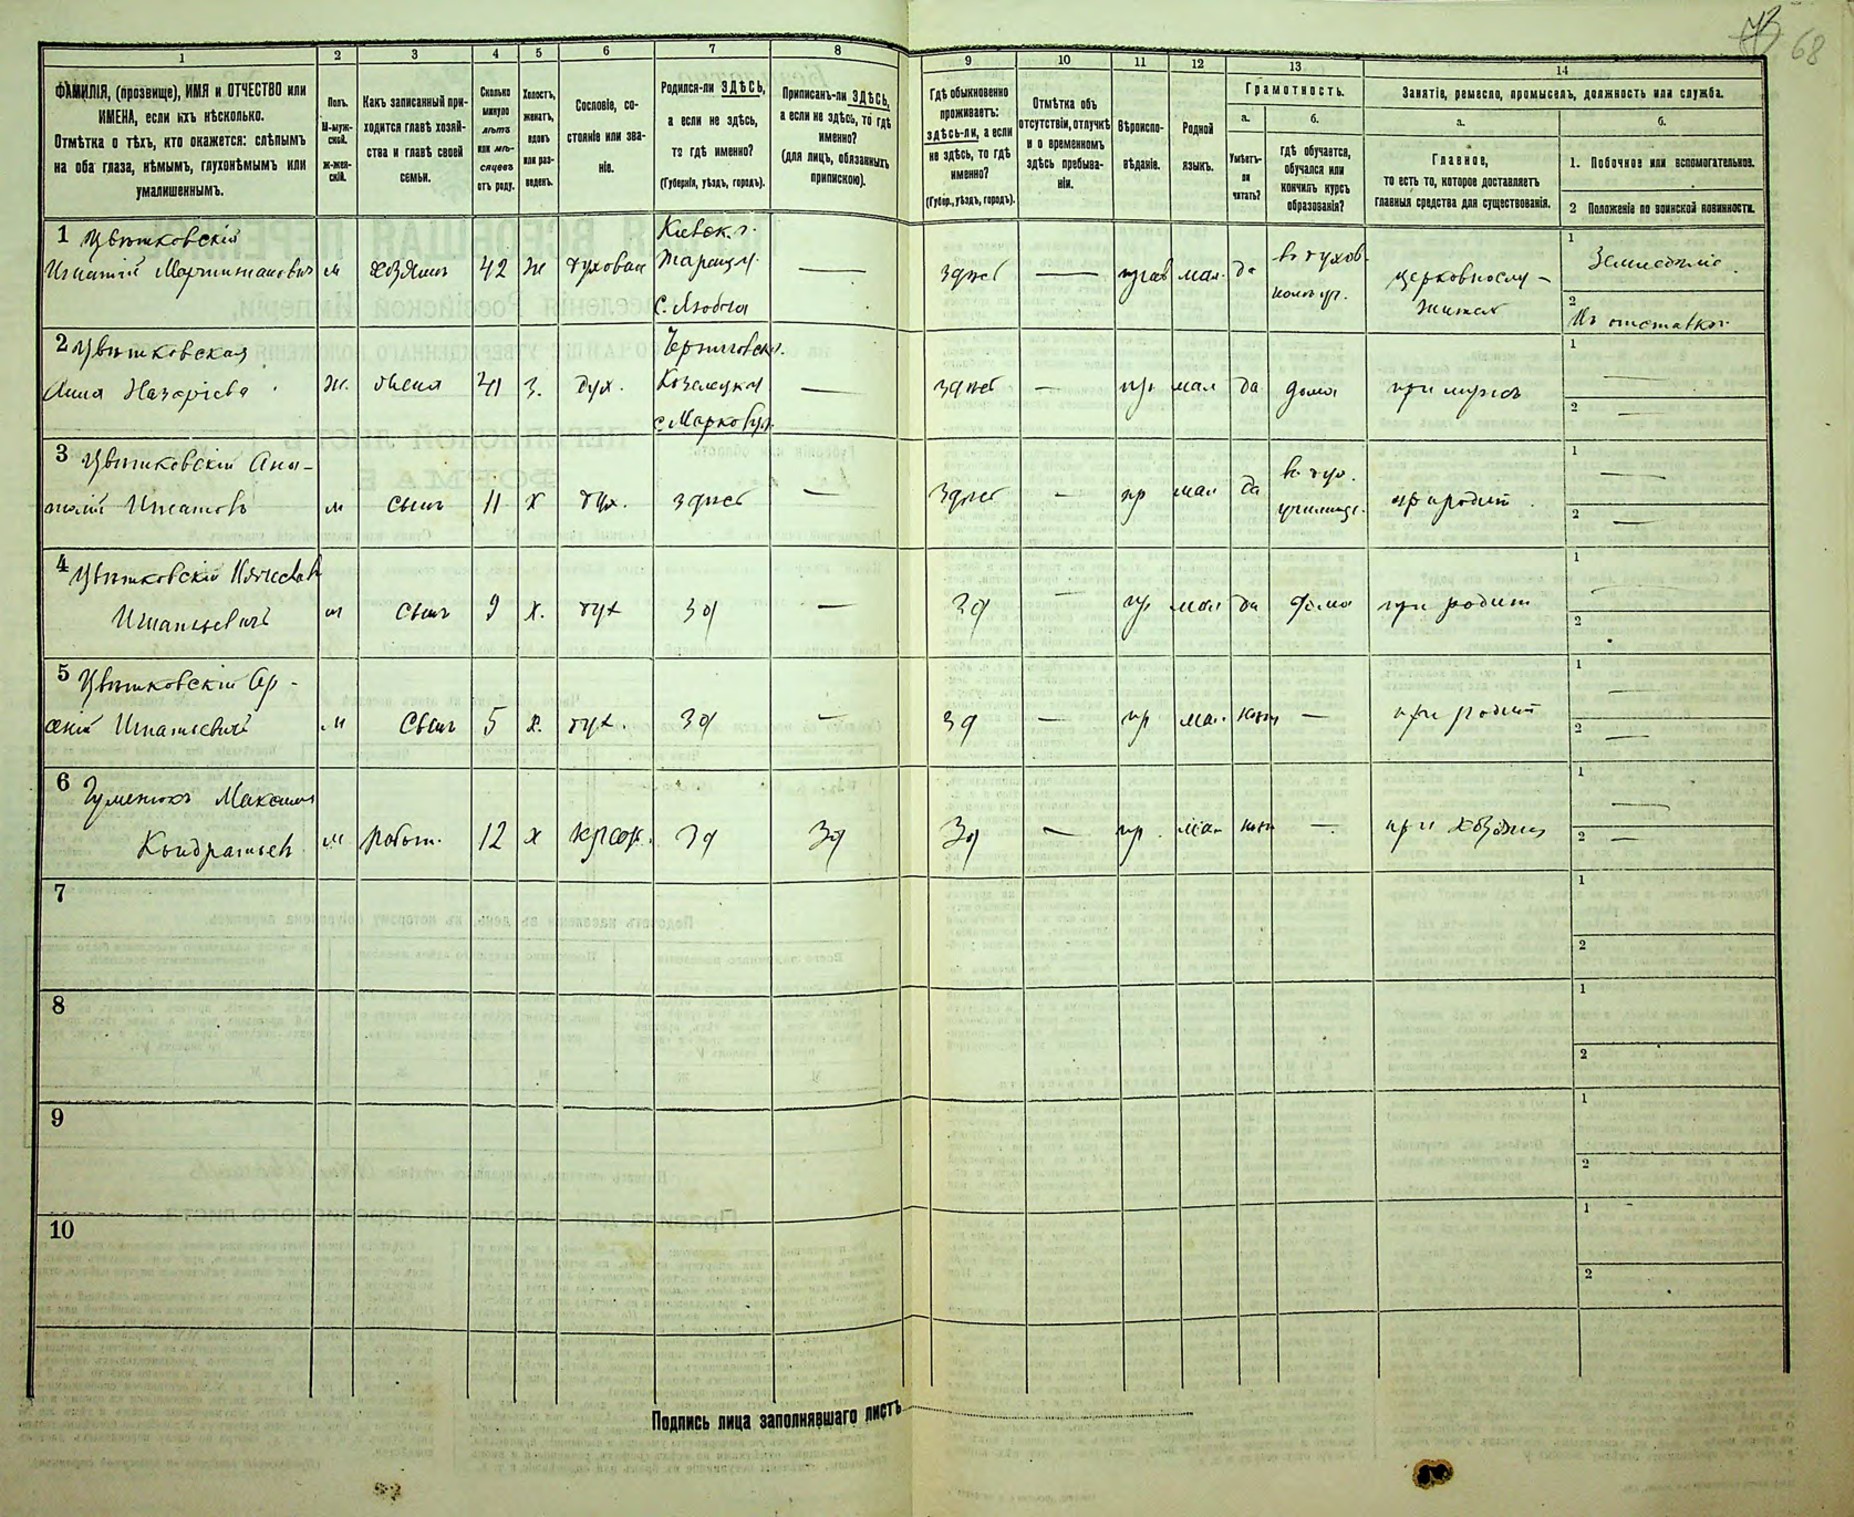 68
1
2
3
4
5
6
7
8
9
10
11
12
13
14
ФАМИЛІЯ, (прозвище), ИМЯ и ОТЧЕСТВО или
ИМЕНА, если ихъ нѣсколько.
Отмѣтка о тѣхъ, кто окажется: слѣпымъ
на оба глаза, нѣмымъ, глухонѣмымъ или
умалишеннымъ.
Полъ.
М-муж-
ской.
ж-жен-
скій.
Какъ записанный при-
ходится главѣ хозяй-
ства и главѣ своей
семьи.
Сколько
минуло
лѣтъ
или мѣ-
сяцевъ
отъ роду.
Холостъ,
женатъ,
вдовъ
или раз-
веденъ.
Сословіе, со-
стояніе или зва-
ніе.
Родился-ли ЗДѢСЬ,
а если не здѣсь,
то гдѣ именно?
(Губернія, уѣздъ, городъ).
Приписанъ-ли ЗДѢСЬ,
а если не здѣсь, то гдѣ
именно?
(для лицъ, обязанныхъ
припискою).
Гдѣ обыкновенно
проживаетъ:
здѣсь-ли, а если
не здѣсь, то гдѣ
именно?
(Губер., уѣздъ, городъ).
Отмѣтка объ
отсутствіи, отлучкѣ
и о временномъ
здѣсь пребыва-
ніи.
Вѣроиспо-
вѣданіе.
Родной
языкъ.
Грамотность.
а.
Умѣетъ-
ли
читать?
б.
гдѣ обучается,
обучался или
кончилъ курсъ
образованія?
Занятіе, ремесло, промыселъ, должность или служба.
а.
Главное,
то есть то, которое доставляетъ
главныя средства для существованія.
б.
1. Побочное или вспомогательное.
2 Положеніе по воинской повинности.
1 Цвѣтковскій
Игнатій Мартиніановичъ м хозяинъ 42 ж духовн Кіевск. г. Таращ. у. здѣсь прав мал. да церковнослу-
житель
1 Земледѣліе
2 Въ отставкѣ
2 Цвѣтковская
Анна Назаріева ж. жена 41 з. дух. Черниговск. г. Козелецк у — здѣсь — пр мал да дома при мужѣ
1 —
2 —
3 Цвѣтковскій Ана-
толій Игнатовъ м сынъ 11 х дух. здѣсь — здѣсь — пр мал да въ дух. училищѣ при родит.
1 —
2 —
4 Цвѣтковскій Вячеславъ
Игнатьевичъ м сынъ 9 х. дух зд — зд — пр мал да дома при родит
1
2
5 Цвѣтковскій Ар-
сеній Игнатьевичъ м сынъ 5 х. дух. зд — зд — пр мал. нѣтъ — при родит
1 —
2 —
6 Гуменюкъ Максимъ
Кондратьев м работн. 12 х крест. зд зд зд — пр. мал нѣтъ — при хозяинѣ
1 —
2 —
7
1
2
8
1
2
9
1
2
10
1
2
Подпись лица заполнявшаго листъ